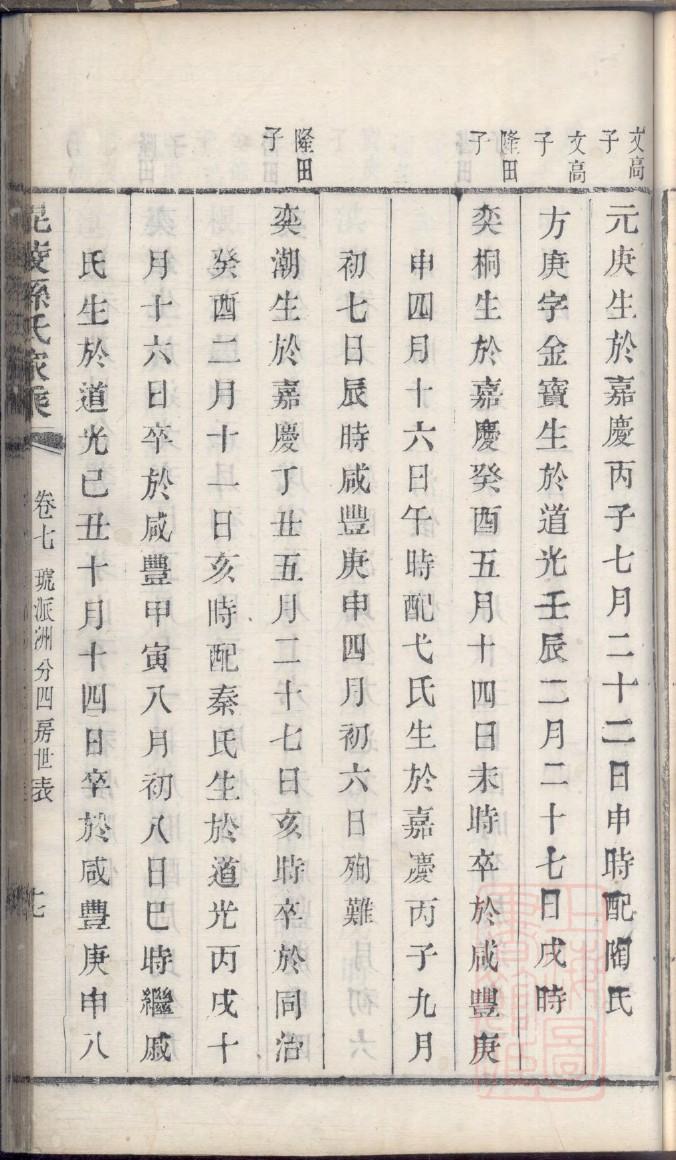 文高子
元庚生於嘉慶丙子七月二十二日申時配陶氏
文高子
方庚字金寶生於道光壬辰二月二十七日戌時
隆田子
奕桐生於嘉慶癸酉五月十四日未時卒於咸豐庚
申四月十六日午時配弋氏生於嘉慶丙子九月
初七日辰時咸豐庚申四月初六日殉難
隆田子
奕潮生於嘉慶丁丑五月二十七日亥時卒於同治
癸酉二月十一日亥時配秦氏生於道光丙戌十
月十六日卒於咸豐甲寅八月初八日巳時繼戚
氏生於道光己丑十月十四日卒於咸豐庚申八
毘陵孫氏家乘
卷七 號派洲分四房世表
七